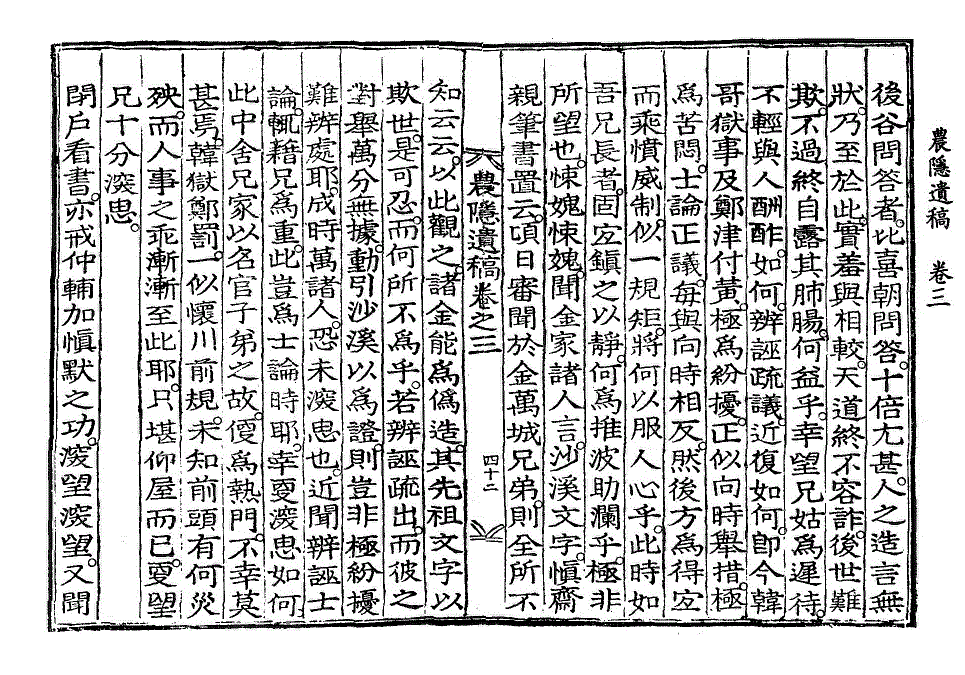 農隱遺稿 卷三
後谷問答者。比喜朝問答。十倍尤甚。人之造言無
狀。乃至於此。實羞與相較。天道終不容詐。後世難
欺。不過終自露其肺腸。何益乎。幸望兄姑爲遲待。
不輕與人酬酢。如何。辨誣疏議。近復如何。卽今韓
哥獄事及鄭津付黃。極爲紛擾。正似向時擧措。極
爲苦悶。士論正議。每與向時相反。然後方爲得宜
而乘憤威制。似一規矩。將何以服人心乎。此時如
吾兄長者。固宜鎭之以靜。何爲推波助瀾乎。極非
所望也。悚媿悚媿。聞金家諸人言。沙溪文字。愼齋
親筆書置云。頃日審聞於金萬城兄弟。則全所不
農隱遺稿卷之三 四十二
知云云。以此觀之。諸金能爲僞造。其先祖文字以
欺世。是可忍。而何所不爲乎。若辨誣疏出。而彼之
對擧萬分無據。動引沙溪以爲證。則豈非極紛擾
難辨處耶。成時萬諸人。恐未深思也。近聞辨誣士
論。輒藉兄爲重。此豈爲士論時耶。幸更深思如何
此中舍兄家以名官子弟之故。便爲熱門。不幸莫
甚焉。韓獄鄭罰。一似懷川前規。未知前頭有何災
殃。而人事之乖漸漸至此耶。只堪仰屋而已。更望
兄十分深思。
閉戶看書。亦戒仲輔加愼默之功。深望深望。又聞